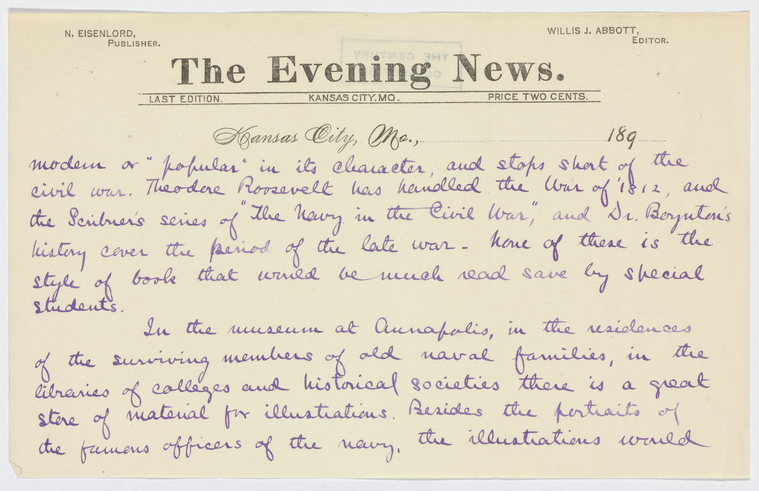 N. EISENLORD,
PUBLISHER.
WILLIS J. ABBOTT,
EDITOR.
THE CENTURY
The Evening News.
LAST EDITION. KANSAS CITY, MO. PRICE TWO CENTS.
Kansas City, Mo., 189
modern or "popular" in its character, and stops short of the
civil war. Theodore Roosevelt has handled the War of '1812, and
the Scribner's series of "The Navy in the Civil War", and Dr. Boynton's
history cover the period of the late war - None of these is the
style of book that would be much read save by special
students.
In the museum at Annapolis, in the residences
of the surviving members of old naval families, in the
libraries of colleges and historical societies there is a great
store of material for illustrations. Besides the portraits of
the famous officers of the navy, the illustrations would